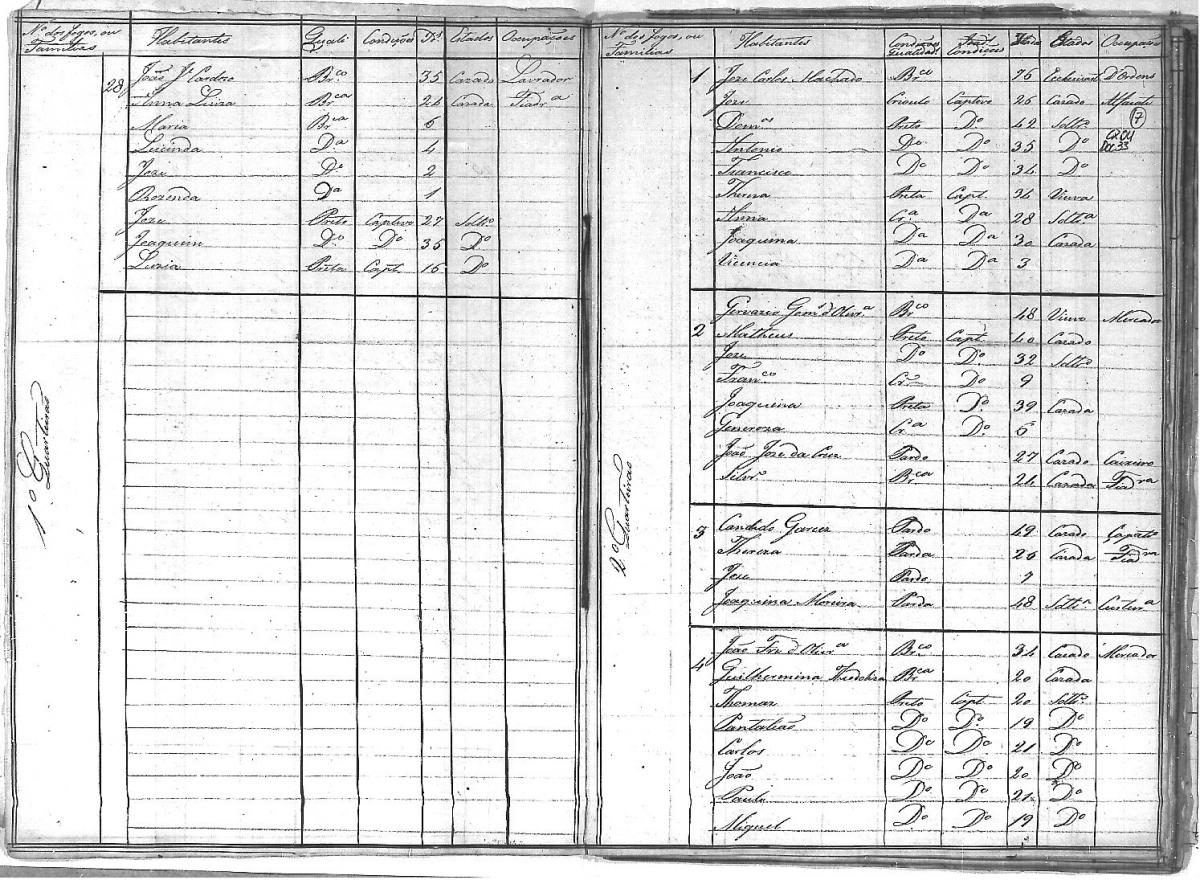 Nº. dos fogos, ou Familias Habitantes Quali Condições Id.s Estados Occupações
28 João Je Cardozo Br.co 35 Cazado Lavrador
Anna Luiza Br.ca 24 Cazada Fiadr.a
Maria Br.ca 6
Lucinda D.a 4
Joze D.o 2
Rozenda D.a 1
Joze Preto Captivo 27 Soltr.o
Joaquim D.o D.o 35 D.o
Luzia Preta Capt. 16 D.o
1.º Quarteirão
Nº. dos fogos, ou Familias Habitantes Condiçoes Qualidad. Condições Idades Estados Occupação
1 Joze Carlos Machado Br.co 76 Ecclesiast D'Ordens
Joze Crioulo Captivo 26 Cazado Alfaiate
Dom.os Preto D.o 42 Soltr.o
7
Antonio D.o D.o 35 D.o
Francisco D.o D.o 34 D.o
Thereza Preta Capt. 34 Viuva
Anna Cr.a D.a 28 Soltr.a
Joaquina D.a D.a 30 Cazada
Vicencia D.a D.a 3
2 Gervazio Gom.s d'Olivr.a Br.co 48 Viuvo Mercador
Matheus Preto Capt. 40 Cazado
Joze D.o D.o 32 Soltr.o
Fran.co Cr.o D.o 9
Joaquina Preta D.o 39 Cazada
Generoza Cr.a D.o 6
João Joze da Cruz Pardo 27 Cazado Caixeiro
Silvr.a Br.ca 24 Cazada Fiadr.a
2º Quarteirão
3 Candido Garcez Pardo 49 Cazado Capat.o
Thereza Parda 26 Cazada Fiadr.a
Joze Pardo 7
Joaquina Moreira Parda 48 Soltr.a Custur.a
4 João Frz d'Olivr.a Br.co 34 Cazado Mercador
Guilhermina Br.ca 20 Cazada
Thomaz Preto Capt. 20 Soltr.o
Pantalião D.o D.o 19 D.o
Carlos D.o D.o 21 D.o
João D.o D.o 20 D.o
Paulo D.o D.o 21 D.o
Miguel D.o D.o 19 D.o